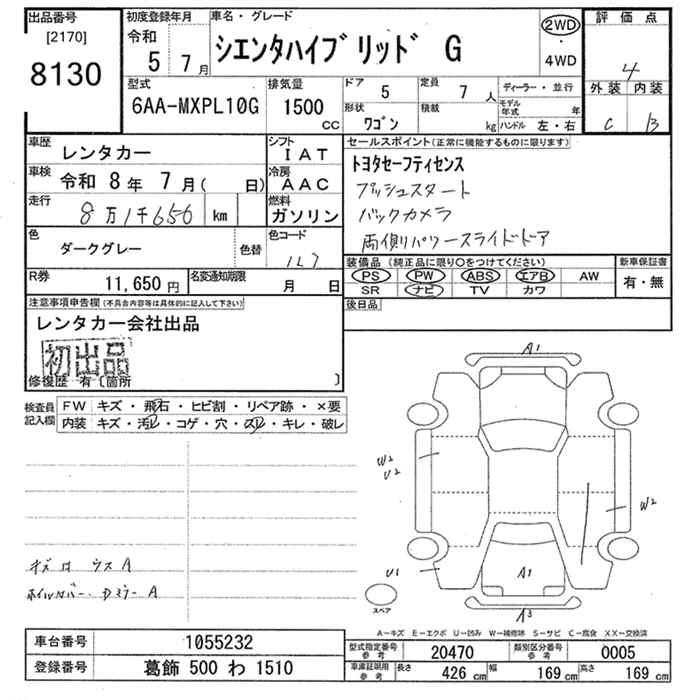 出品番号
[2170]
8130
初度登録年月
令和
5 7月
車名・グレード
シエンタハイブリッド G
2WD
・
4WD
評価点
4
外装 内装
C B
型式
6AA-MXPL10G
排気量
1500
cc
ドア 5
形状 ワゴン
定員 7 人
積載 kg
ディーラー・並行
モデル年式 年
ハンドル 左・右
車歴 レンタカー
車検 令和 8年 7月( 日)
走行 8万1千656 km
シフト IAT
冷房 AAC
燃料 ガソリン
色 ダークグレー
色替
色コード 1L7
R券 11,650円
名変通知期限 月 日
セールスポイント(正常に機能するものに限ります)
トヨタセーフティセンス
プッシュスタート
バックカメラ
両側パワースライドドア
装備品(純正品に限り○をつけてください)
PS PW ABS エアB AW
SR ナビ TV カワ
新車保証書
有・無
後日品
注意事項申告欄(不具合内容等は具体的に記入して下さい)
レンタカー会社出品
初出品
修復歴 有〔箇所 〕
検査員記入欄
FW キズ・飛石・ヒビ割・リペア跡・×要
内装 キズ・汚レ・コゲ・穴・スレ・キレ・破レ
キズ凹 ウスA
ホイルカバー・ドアミラーA
A1
W2
U2
W2
U1
A1
A3
スペア
A-キズ E-エクボ U-凹み W-補修跡 S-サビ C-腐食 XX-交換済
車台番号 1055232
登録番号 葛飾 500 わ 1510
型式指定番号参考 20470
類別区分番号参考 0005
車庫証明用参考 長さ 426cm 幅 169cm 高さ 169cm